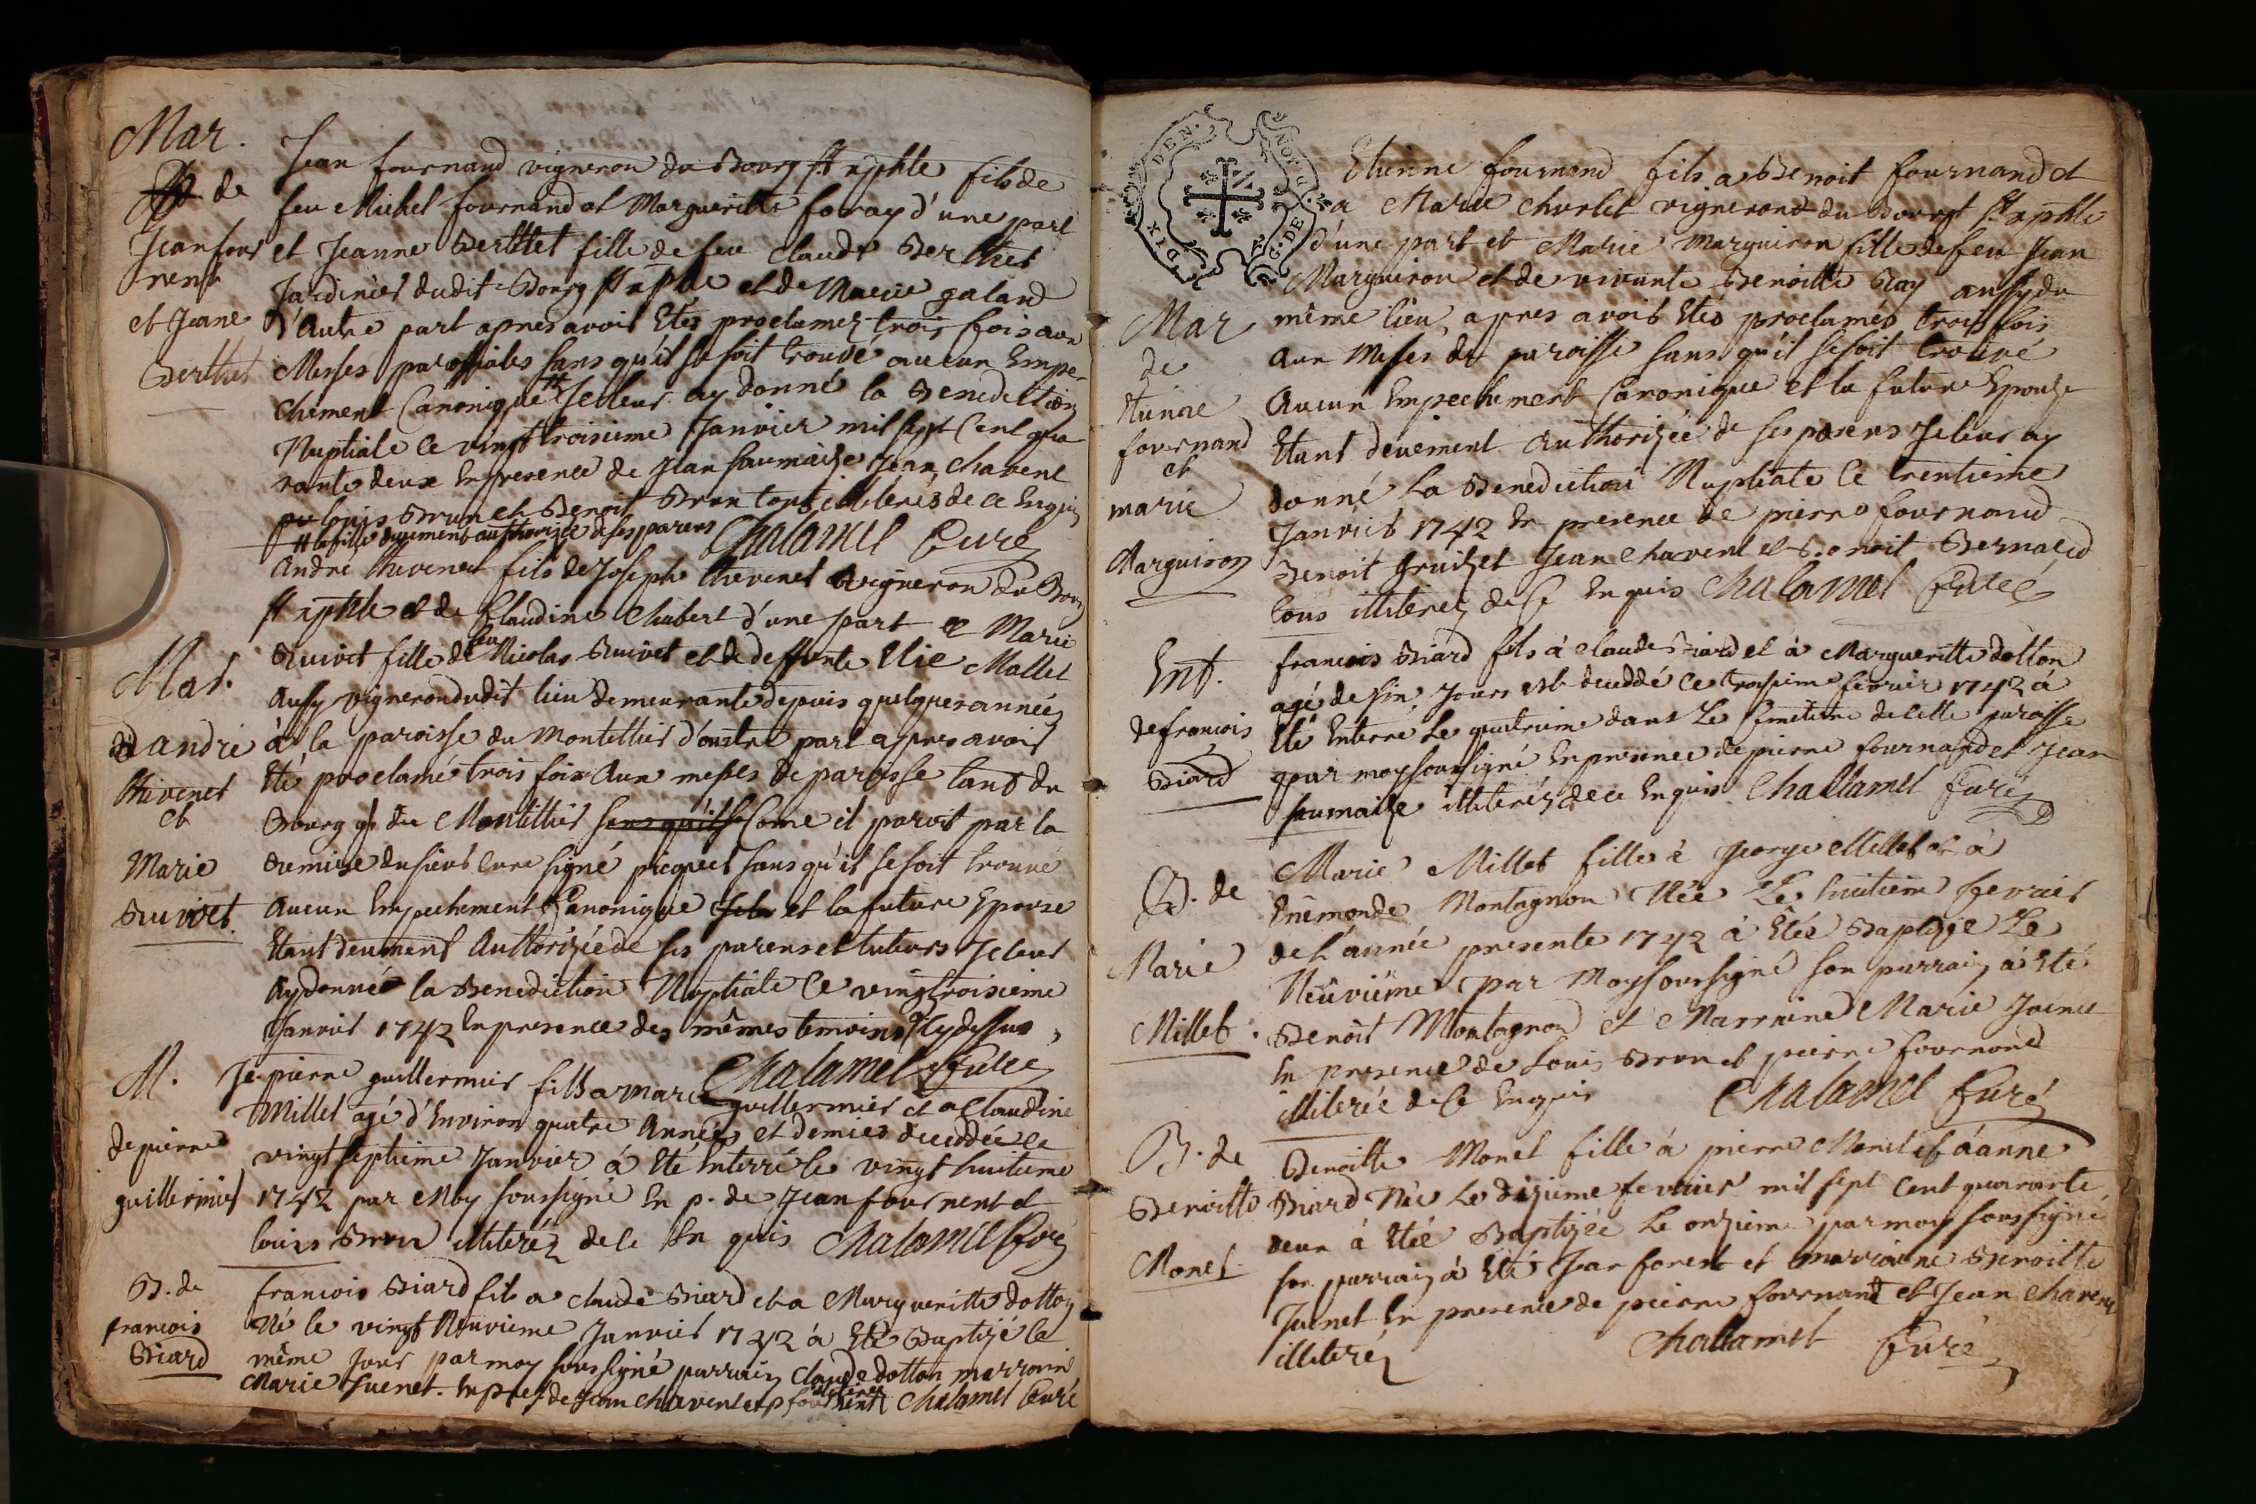 Mar.
de
Jean four
nent
et Jeane
Berthet
Jean fournand vigneron du Bourg St xphle fils de
feu Michel fournand et Margueritte foray d'une part
et Jeanne Berthet fille de feu Claude Berthet
Jardinier dudit Bourg St xphle et de Marie galand
d'Autre part apres avoir Etés proclamez trois fois aux
Messes paroissiales sans qu'il se soit trouvé aucun Empe-
chement Canonique # Je leur ay donné la Benediction
Nuptiale ce vingt troisieme Janvier mil sept Cent qua
rante deux En presence de Jean saumaize Jean Chavent
louis Brun et Benoit Brun tous illiterés de ce Enquis
# la fille duement authorizée de ses parens Chalamel Curé
Mar.
de andré
thevenet
et
Marie
Buivet.
André thevenet fils de Joseph thevenet vigneron du Bourg
St xphle et de Claudine Chabert d'une part et Marie
Buivet fille de feu Nicolas Buivet et de deffunte Elie Mallet
Aussy vigneron dudit lieu demeurante depuis quelques années
à la paroisse du Montellier d'autre part apres avoir
Eté proclamé trois fois Aux messes de paroisse tant du
Bourg que du Montellier sans qu'il se Come il paroit par la
remise du sieur Curé signé picquet sans qu'il se soit trouvé
Aucun Empechement Canonique Je leur et la future Epouse
Etant deument Authorizée de ses parens et tuteurs Je leur
Ay donnée la Benediction Nuptiale Ce vingtroisieme
Janvier 1742 En presence des mêmes temoins Cy dessus,
Chalamel Curé
M.
de pierre
guillermier
Je pierre guillermier fils a marc guillermier et a Claudine
Millet agé d'Environ quatre Années et demies deceddée le
vingt septieme Janvier á Eté Enterré le vingt huitieme
1742 par Moy soussigné En p. de Jean fournent et
louis Brun illiteréz de ce En quis Chalamel Curé
B. de
francois
Biard
francois Biard fils a claude Biard et a Margueritte dotton
Né le vingt Neuvieme Janvier 1742 á Eté Baptizé le
même Jour par moy soussigné parrain Claude dotton marraine
Marie Juenet. En pres. de Jean Chavent et p fournent illiterez Chalamel Curé
DEN. NOTD. G. DE DIX
Mar
de
Etienne
fournand
et
marie
Marguiron
Etienne fournand fils a Benoit fournand et
a Marie Charlet vignerond du Bourgt St xphle
d'une part et Marie Marguiron fille de feu Jean
Marguiron et de vivante Benoitte Ray aussy du
même lieu, apres avoir Etés proclamés trois fois
aux Messes de paroisse sans qu'il se soit trouvé
Aucun Empechement Canonique et la future Epouse
Etant deuement Authorizée de ses parens Je leur ay
donné La Benediction Nuptiale Ce trentieme
Janvier 1742 En presence de pierre fournand
Benoit Jruizet Jean Chavent et Benoit Bernard
tous illiterez de Ce Enquis Chalamel Curé
Ent.
de francois
Biard
francois Biard fils à claude Biard et à Margueritte dotton
agé de six Jours est deceddé Ce troisieme fevrier 1742 á
Eté Enterré Le quatrieme dans Le Cimetiere de cette paroisse
par moy soussigné En presence de pierre fournand et Jean
saumaize illiteréz de ce Enquis Chalamel Curé
B. de
Marie
Millet.
Marie Millet fille à george Millet et à
Enêmonde Montagnon Née Le huitieme fevrier
de l'année presente 1742 á Etée Baptizée Le
Neûvieme par Moy soussigné son parrain á Eté
Benoît Montagnon et Marraine Marie Juenet
En presence de louis Brun et pierre fournand
illiterée de Ce Enquis Chalamel Curé
B. de
Benoitte
Monet.
Benoitte Monet fille á pierre Monet et á anne
Biard Née Le dizieme fevrier mil sept Cent quarante
deux á Etée Baptizée Le onzieme par moy soussigné
son parrain á Eté Jean forest et marraine Benoitte
Juenet En presence de pierre fournand et Jean Chavent
illiteréz Chalamel Curé